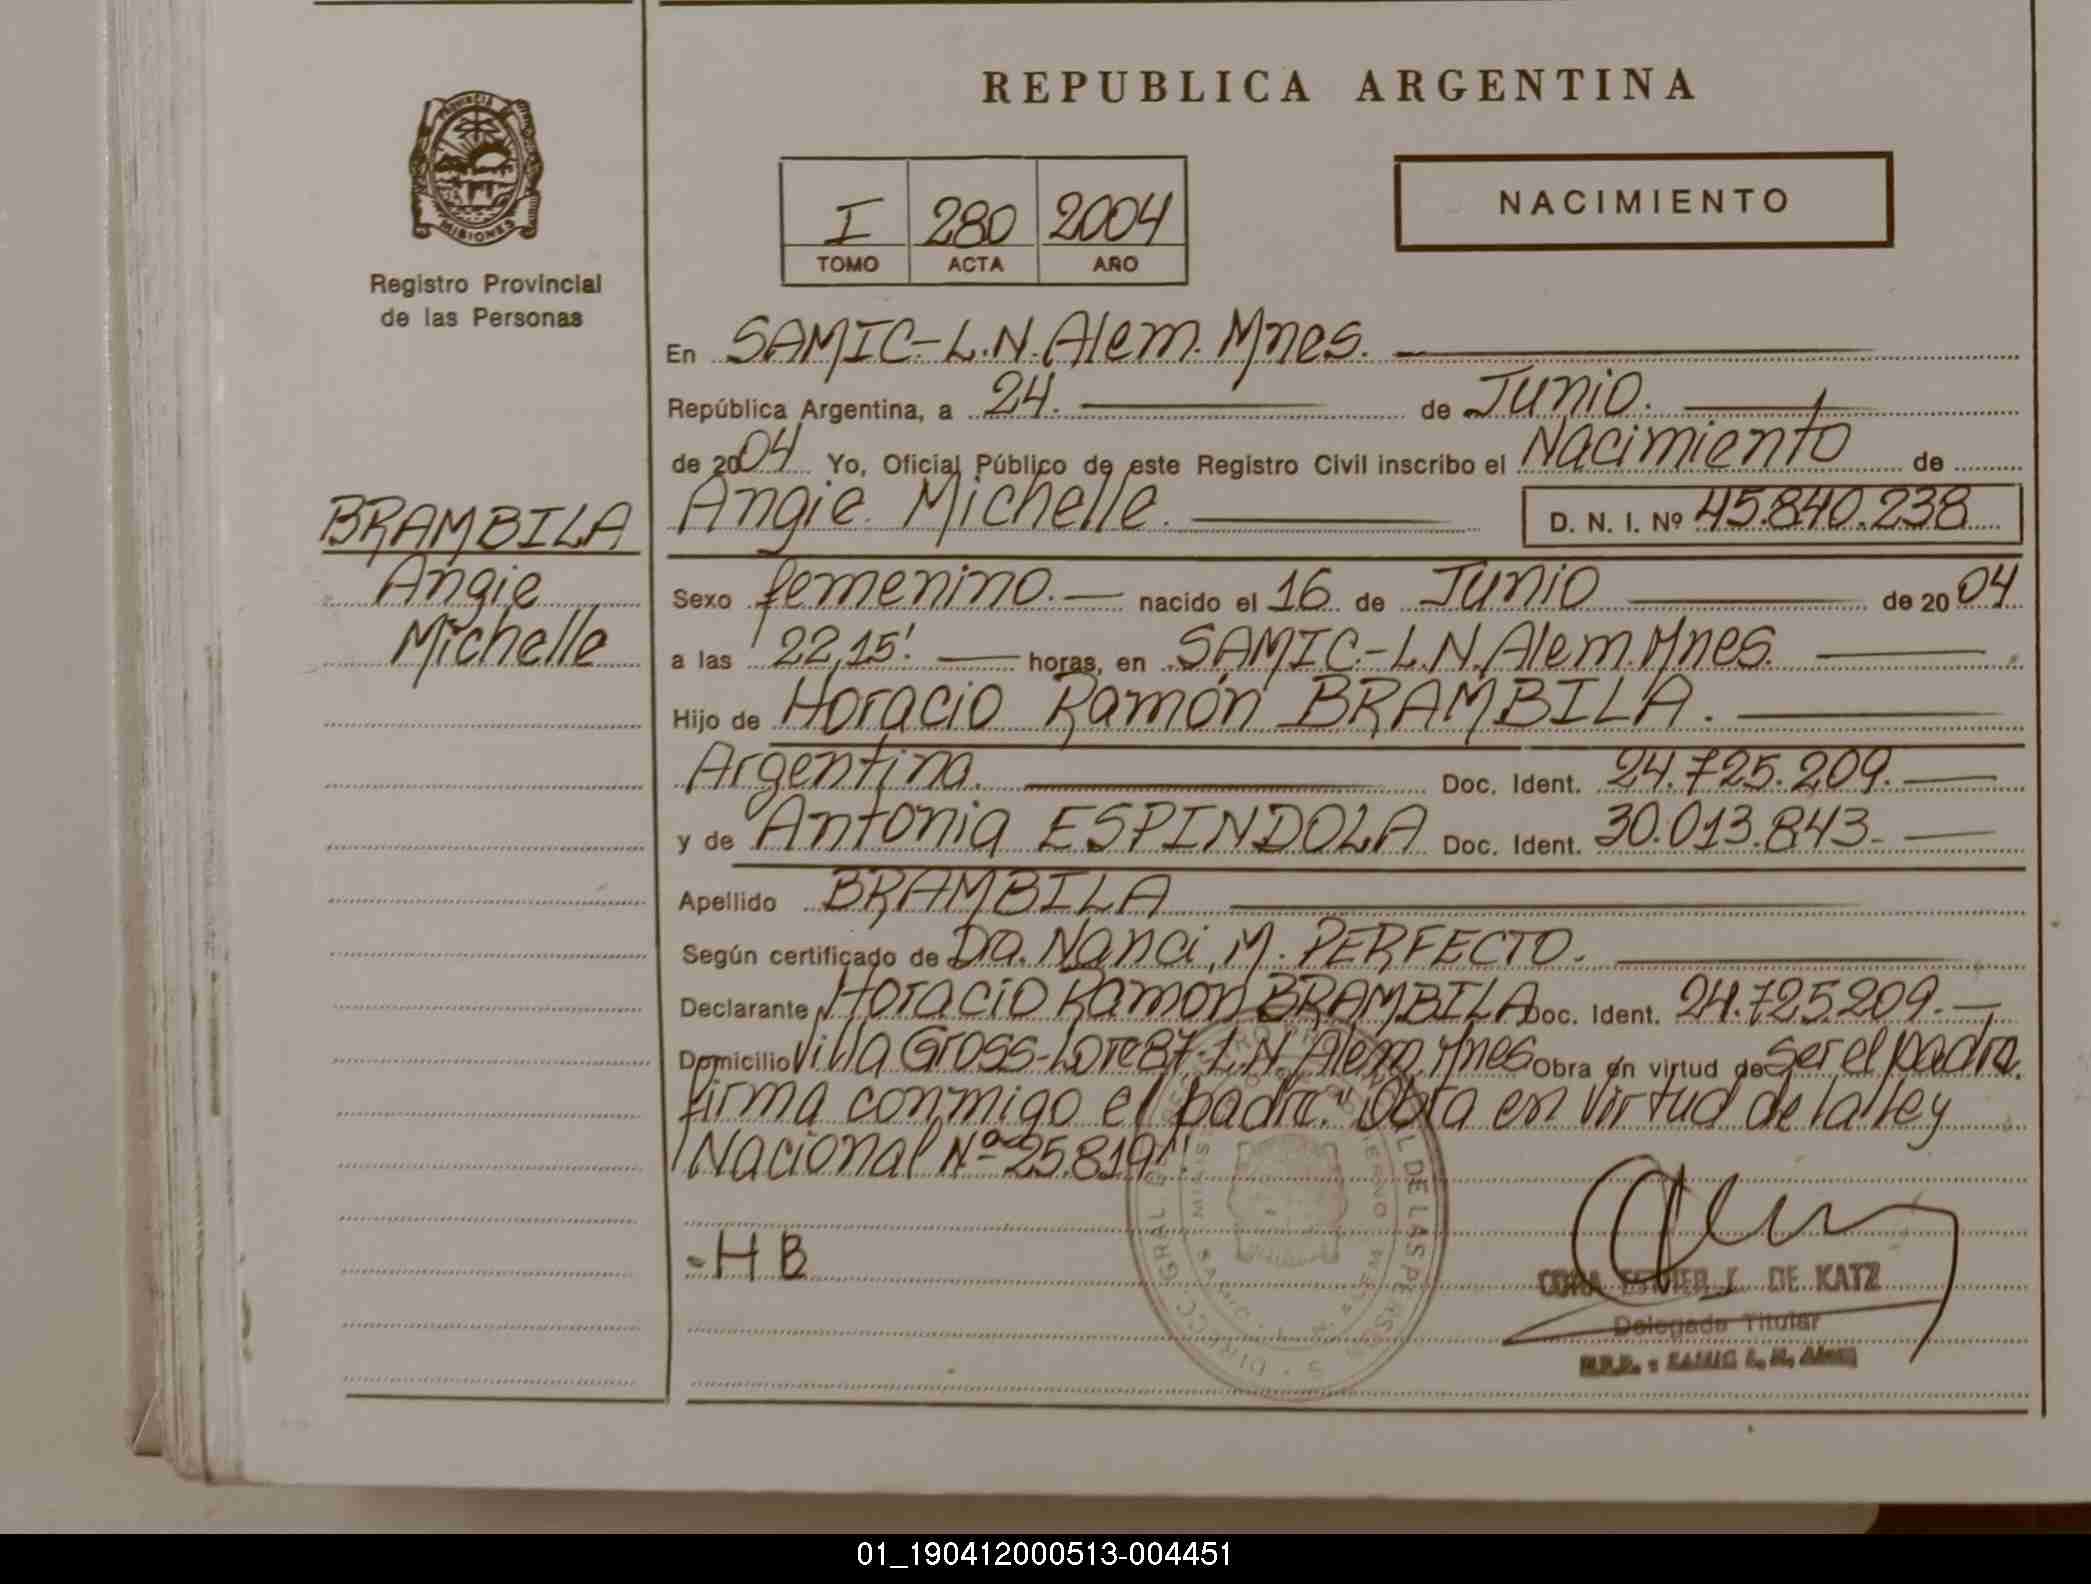 REPUBLICA ARGENTINA
PROVINCIA DE MISIONES
Registro Provincial
de las Personas
I 280 2004
TOMO ACTA AÑO
NACIMIENTO
En SAMIC-L.N.Alem.Mnes.
República Argentina, a 24. de Junio.
de 2004 Yo, Oficial Público de este Registro Civil inscribo el Nacimiento de
Angie Michelle. D. N. I. Nº 45.840.238
BRAMBILA
Angie
Michelle
Sexo femenino. nacido el 16 de Junio de 2004
a las 22,15' horas, en SAMIC.-L.N.Alem.Mnes.
Hijo de Horacio Ramón BRAMBILA.
Argentina. Doc. Ident. 24.725.209.
y de Antonia ESPINDOLA Doc. Ident. 30.013.843-
Apellido BRAMBILA
Según certificado de Da. Nanci, M. PERFECTO.
Declarante Horacio Ramon BRAMBILA Doc. Ident. 24.725.209.-
Domicilio Villa Gross-Lote 87-L.N Alem.Mnes Obra en virtud de ser el padre.
firma conmigo el padre. "Obra en virtud de la ley
Nacional Nº 25.819".
-H B
CORA ESTHER J. DE KATZ
Delegada Titular
R.P.P. : SAMIC L. N. Alem
01_190412000513-004451